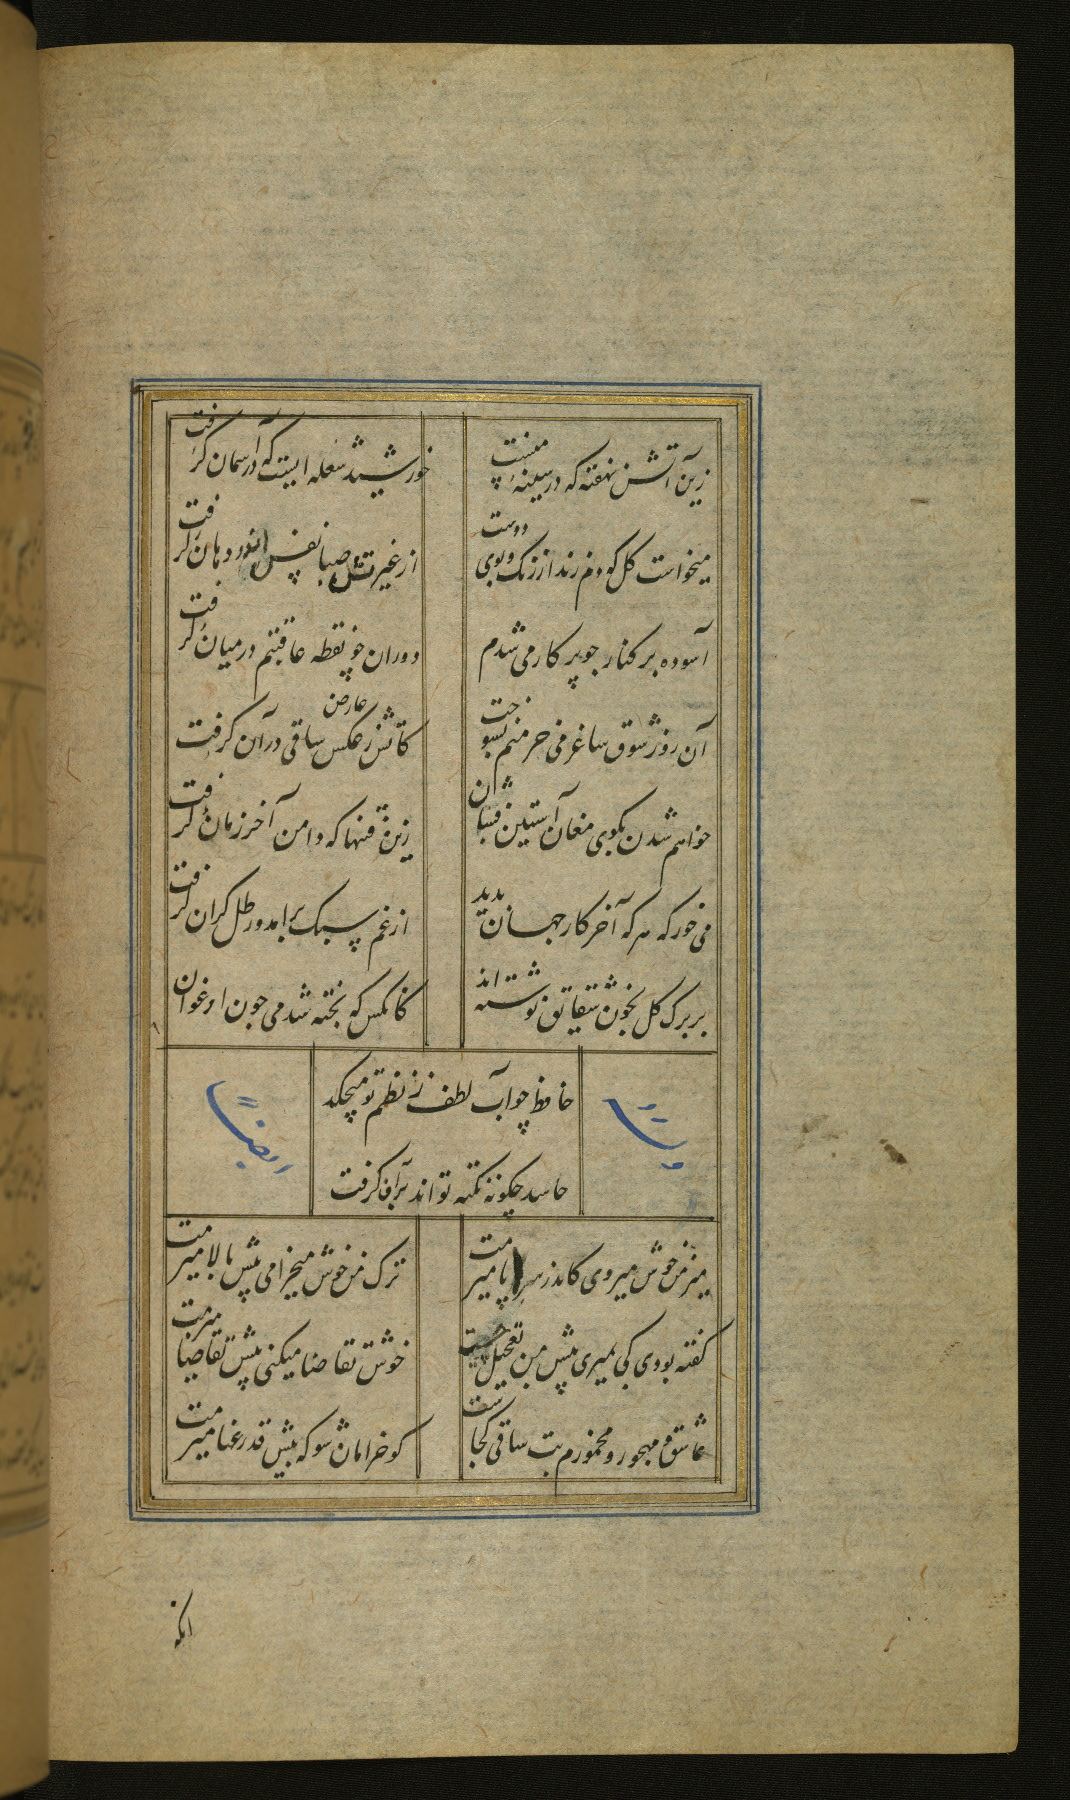 زین آتش نهفته که در سینه منست
خورشید شعله ایست که در آسمان گرفت
میخواست گل که دم زند از رنگ و بوی دوست
از غیرتش صبا نفس اندر دهان گرفت
آسوده بر کنار چو پرکار می شدم
دوران چو نقطه عاقبتم در میان گرفت
آن روز شوق ساغر می خرمنم بسوخت
کاتش ز عکس عارض ساقی در آن گرفت
خواهم شدن بکوی مغان آستین فشان
زین فتنها که دامن آخر زمان گرفت
می خور که هر که آخر کار جهان بدید
از غم سبک برآمد و رطل گران گرفت
بر برک گل بخون شقایق نوشته اند
کانکس که پخته شد می چون ارغوان
حافظ چو آب لطف ز نظم تو میچکد
حاسد چگونه نکته تواند بر آن گرفت
ایضاً
میر من خوش میروی کاندر سراپا میرمت
ترک من خوش میخرامی پیش بالا میرمت
گفته بودی کی بمیری پیش من تعجیل چیست
خوش تقاضا میکنی پیش تقاضا میرمت
عاشق و مهجور و مخمورم بت ساقی کجاست
کو خرامان شو که پیش قد رعنا میرمت
انکه